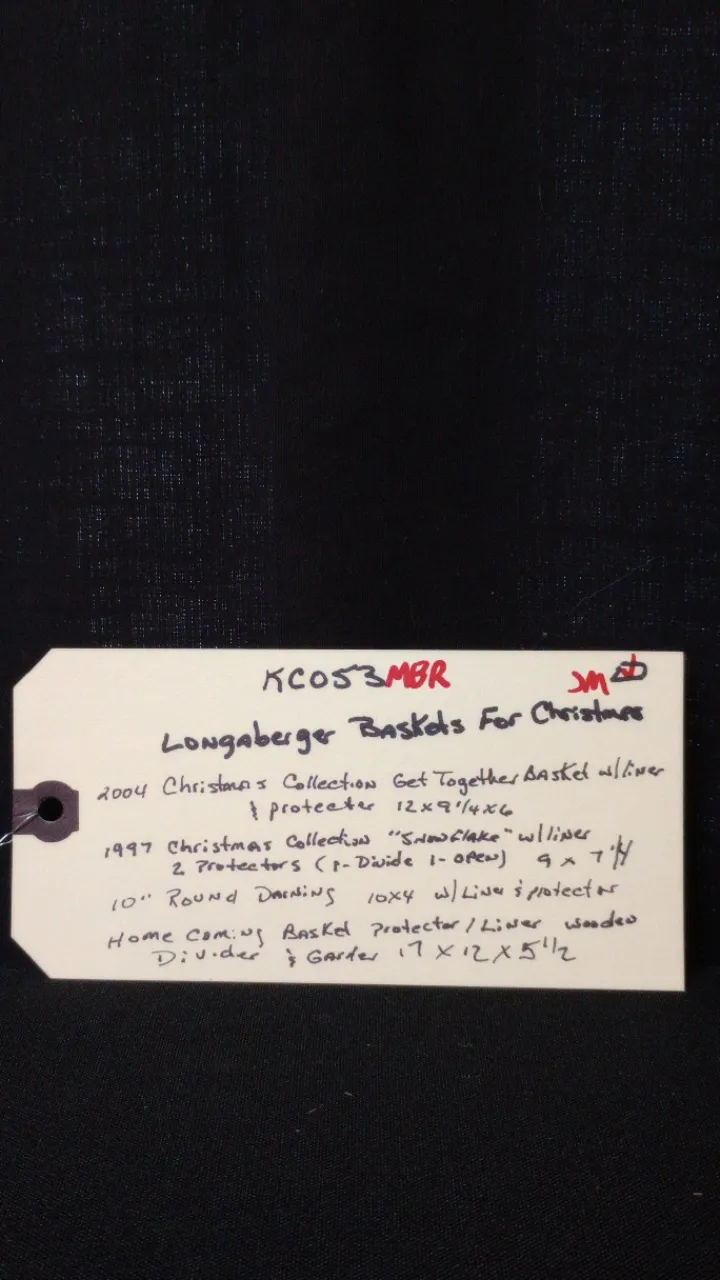 KC053MBR JM
Longaberger Baskets For Christmas
2004 Christmas Collection Get Together Basket w/liner
& protecter 12x9 1/4x6
1997 Christmas Collection "Snowflake" w/liner
2 Protectors (1-Divide 1-open) 9 x 7 1/4
10" Round Darning 10x4 w/Liner & protector
Home Coming Basket Protector/Liner wooden
Divider & Garder 17 x 12 x 5 1/2